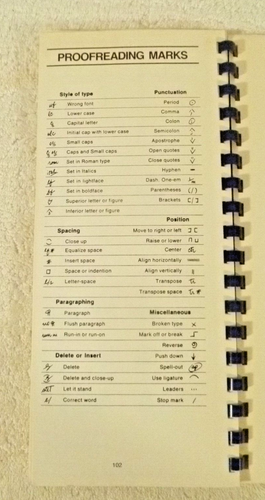 PROOFREADING MARKS
Style of type
wf Wrong font
lc Lower case
Capital letter
Initial cap with lower case
Small caps
Caps and Small caps
Set in Roman type
Set in Italics
Set in lightface
bf Set in boldface
Superior letter or figure
Inferior letter or figure
Spacing
Close up
Equalize space
# Insert space
Space or indention
Letter-space
Paragraphing
¶ Paragraph
Flush paragraph
Run-in or run-on
Delete or Insert
Delete
Delete and close-up
Let it stand
Correct word
Punctuation
Period
Comma
Colon
Semicolon
Apostrophe
Open quotes
Close quotes
Hyphen
Dash, One-em
Parentheses (/)
Brackets [/]
Position
Move to right or left ] [
Raise or lower
Center
Align horizontally
Align vertically ||
Transpose
Transpose space
Miscellaneous
Broken type ×
Mark off or break
Reverse
Push down
Spell-out
Use ligature
Leaders
Stop mark /
102